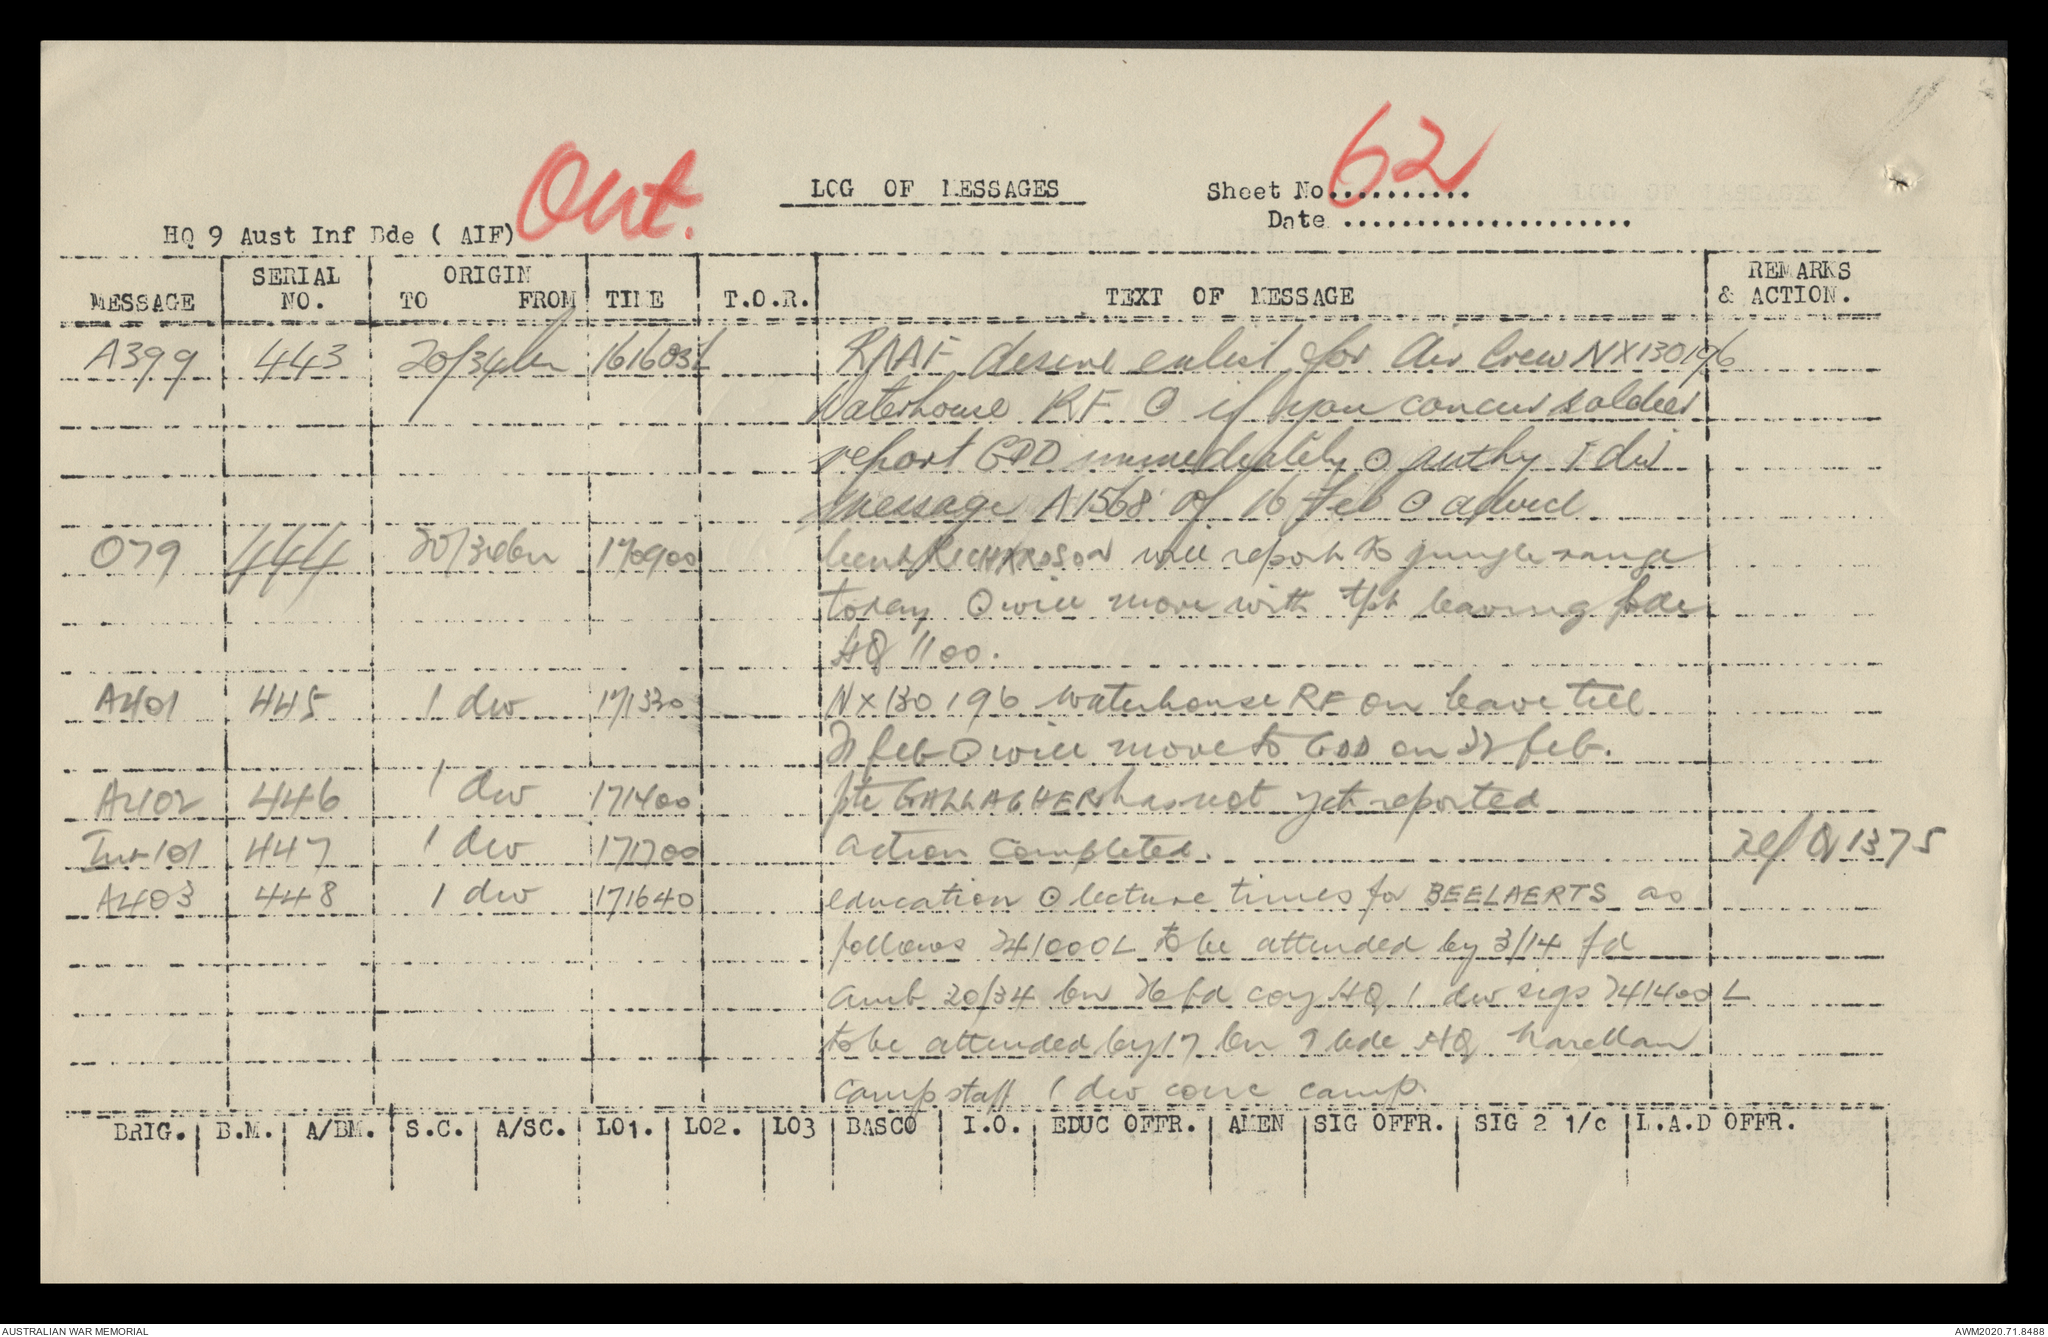 Out.
62
LOG OF MESSAGES
Sheet No...........
Date .....................
HQ 9 Aust Inf Bde ( AIF)
MESSAGE SERIAL NO. ORIGIN TO FROM TIME T.O.R. TEXT OF MESSAGE REMARKS & ACTION.
A399 443 20/34 bn 161603L RAAF desire enlist for Air Crew NX130196
Waterhouse RF ⊙ if you concur soldier
report GDD immediately ⊙ authy 1 div
message A1568 of 16 Feb ⊙ advied
O79 444 20/34 bn 170900 Lieut RICHARDSON will report to jungle range
today ⊙ will move with tpt leaving bde
HQ 1100.
A401 445 1 div 171330 NX130196 Waterhouse RF on leave till
21 feb ⊙ will move to GDD on 22 feb.
A402 446 1 div 171400 pte GALLAGHER has not yet reported
Int 101 447 1 div 171700 action completed. ref Q 1375
A403 448 1 div 171640 education ⊙ lecture times for BEELAERTS as
follows 241000L to be attended by 3/14 fd
amb 20/34 bn 76 fd coy HQ 1 div sigs 241400L
to be attended by 17 bn 9 bde HQ Narellan
Camp staff 1 div conc camp.
BRIG. B.M. A/BM. S.C. A/SC. LO1. LO2. LO3 BASCO I.O. EDUC OFFR. AMEN SIG OFFR. SIG 2 1/c L.A.D OFFR.
AUSTRALIAN WAR MEMORIAL AWM2020.71.8488